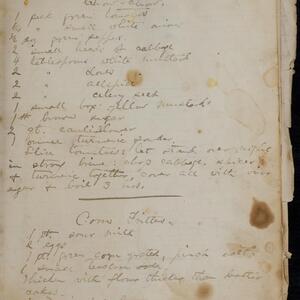 Chow-Chow.
1 peck green tomatoes
½ " small white onions
½ doz green pepper.
2 small heads of cabbage
4 tablespoons white mustard
2 " cloves
2 " allspice
2 " celery seed
1 small box yellow mustard
1 # brown sugar
qt. cauliflower
ounce turmeric powder.
Slice tomatoes let stand over night
in strong brine: chop cabbage,
& turmeric together, cover all with
sugar & boil 3 hrs.
Corn Fritters.
1 pt sour milk
2 eggs
1 pt green corn grated, pinch salt
1 small teaspoon soda
Thicken with flour thicker than batter
cakes.